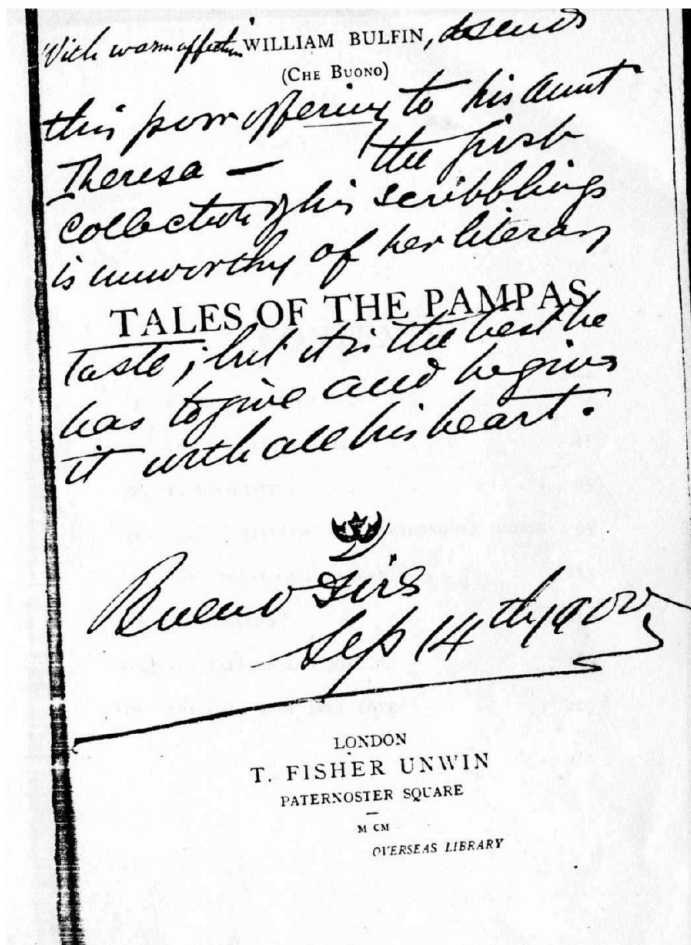 With warm affection WILLIAM BULFIN, sends
(CHE BUONO)
this poor offering to his aunt
Theresa — the first
collection of his scribblings
is unworthy of her literary
TALES OF THE PAMPAS
taste; but it is the best he
has to give and he gives
it with all his heart.
Buenos Aires
Sep 14th 1900
LONDON
T. FISHER UNWIN
PATERNOSTER SQUARE
M CM
OVERSEAS LIBRARY